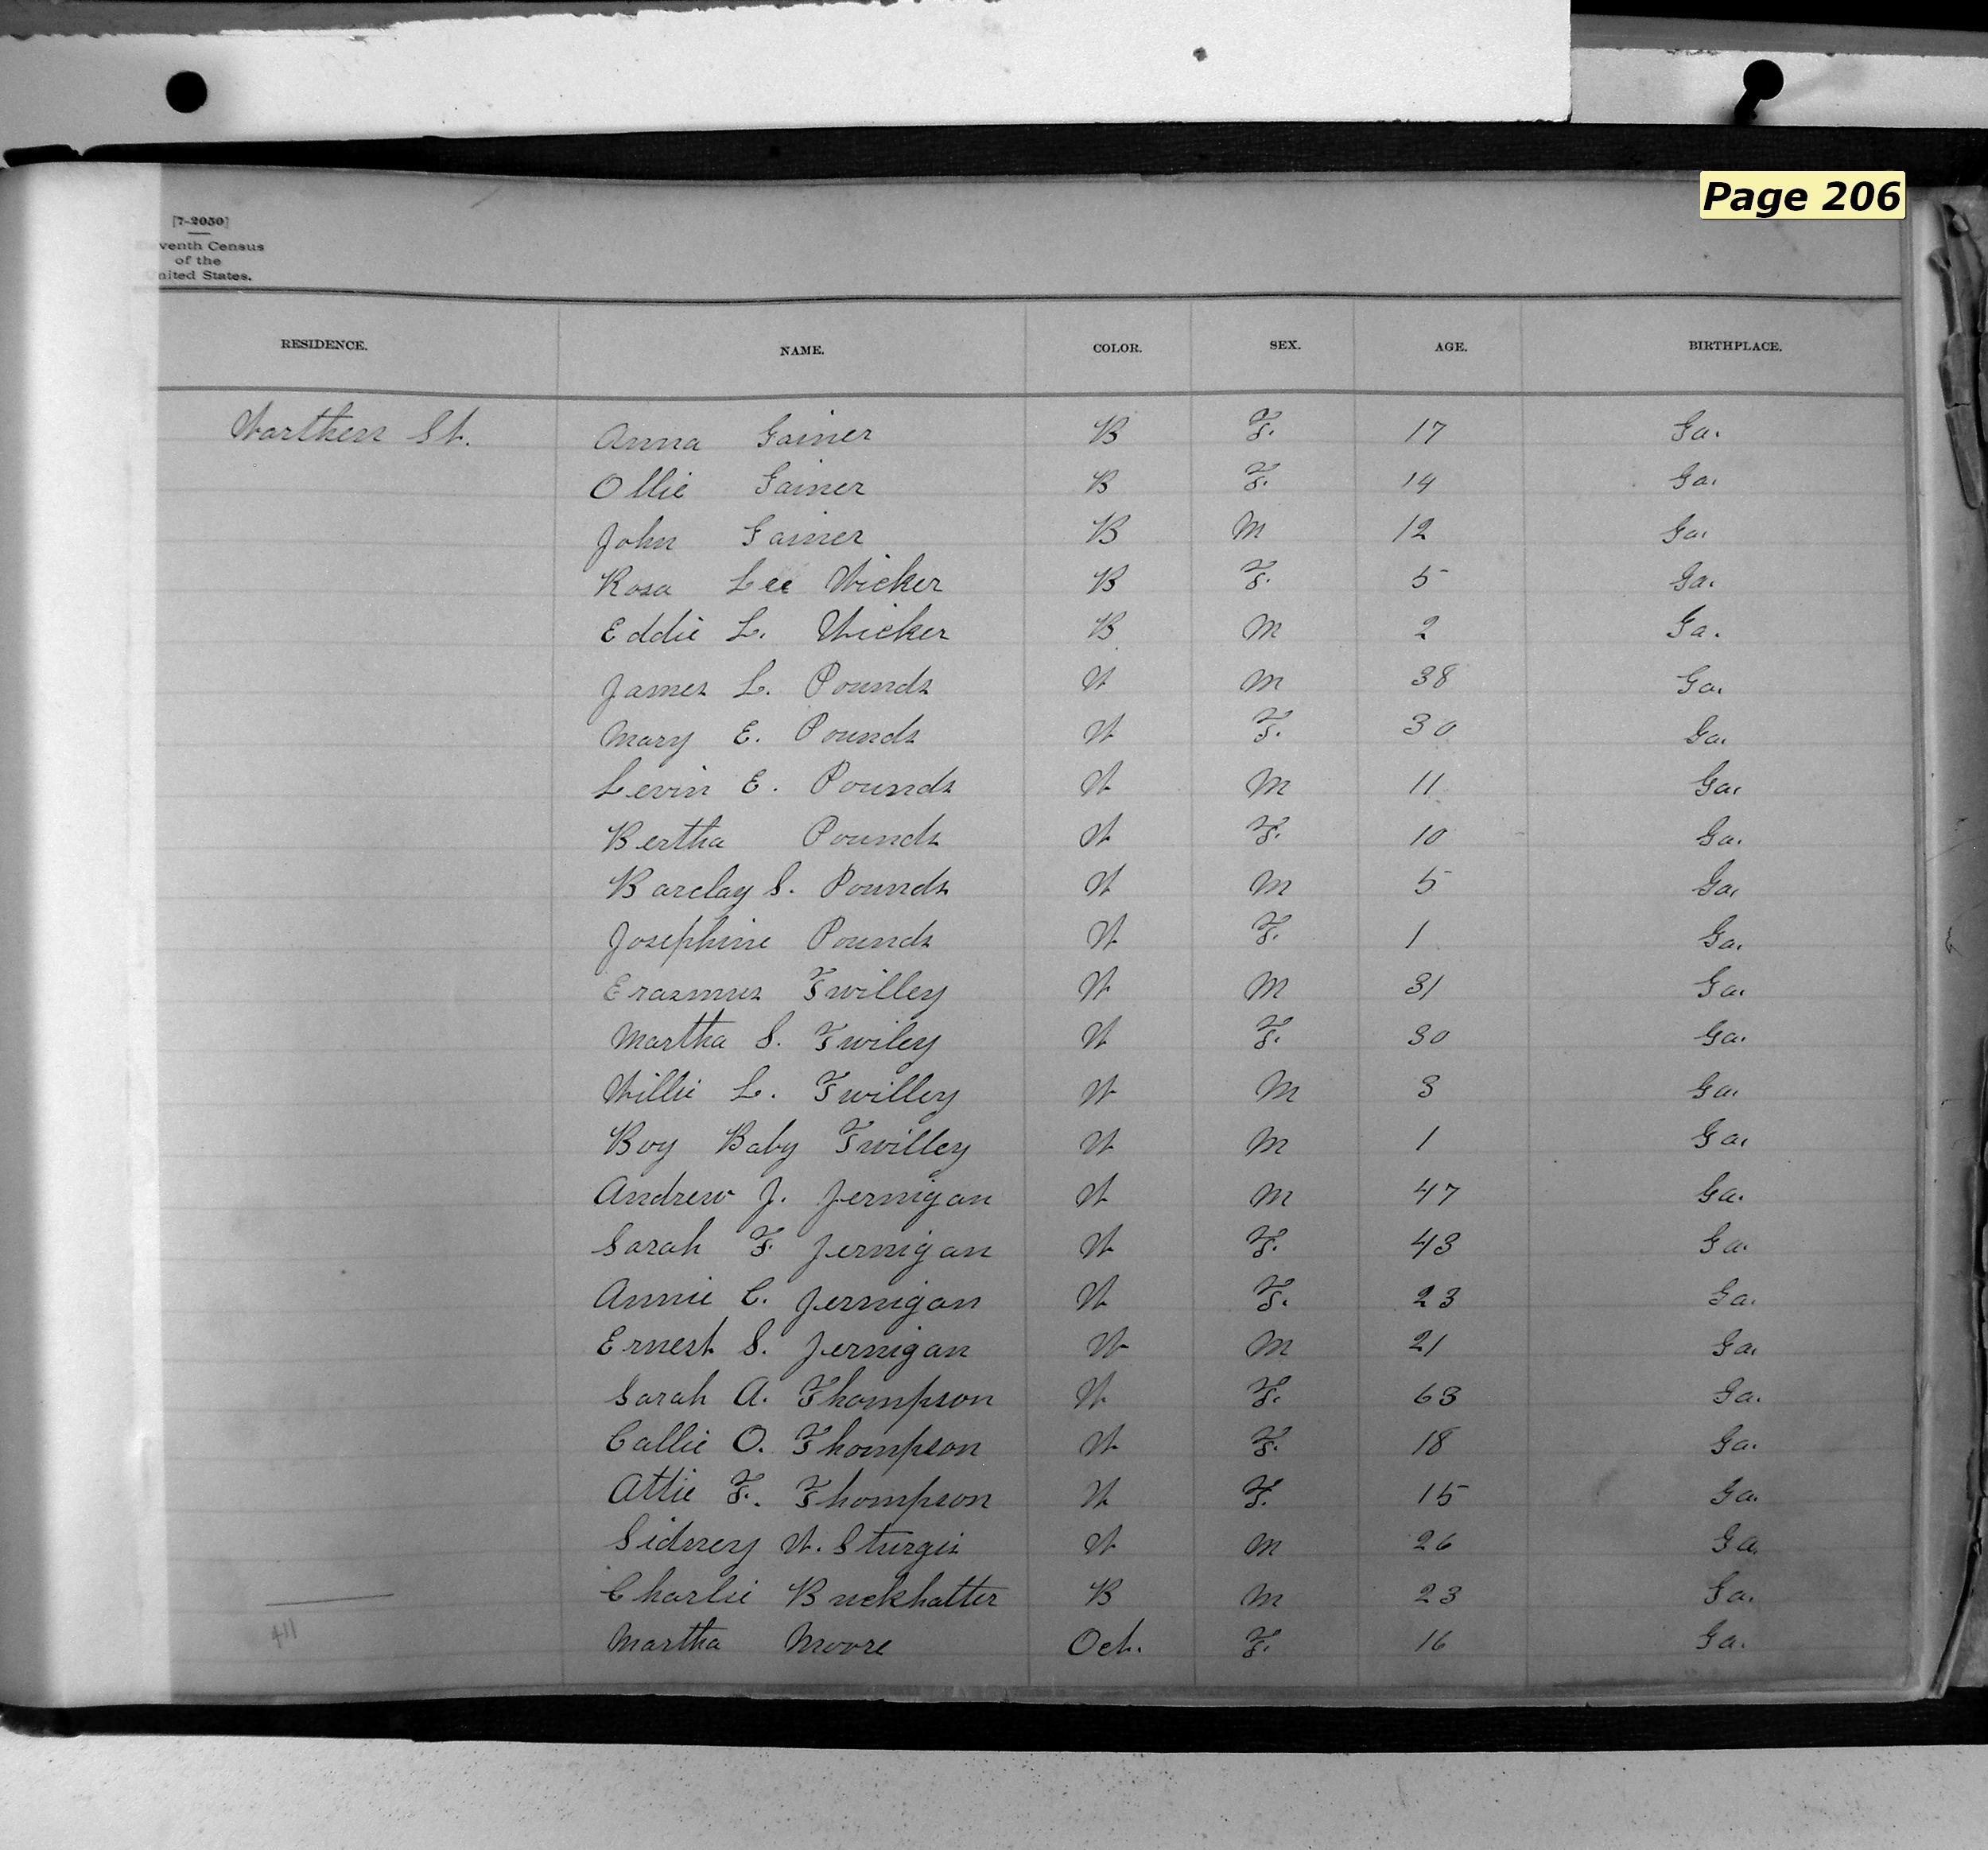 Page 206
[7-2050]
venth Census
of the
nited States.
RESIDENCE. NAME. COLOR. SEX. AGE. BIRTHPLACE.
Warthen St. Anna Gainer B F. 17 Ga.
Ollie Gainer B F. 14 Ga.
John Gainer B M 12 Ga.
Rosa Lee Wicker B F. 5 Ga.
Eddie L. Wicker B M 2 Ga.
James L. Pounds W M 38 Ga.
Mary E. Pounds W F. 30 Ga.
Levin E. Pounds W M 11 Ga.
Bertha Pounds W F. 10 Ga.
Barclay S. Pounds W M 5 Ga.
Josephine Pounds W F. 1 Ga.
Erasmus Twilley W M 31 Ga.
Martha S. Twiley W F. 30 Ga.
Willie L. Twilley W M 3 Ga.
Boy Baby Twilley W M 1 Ga.
Andrew J. Jernigan W M 47 Ga.
Sarah F. Jernigan W F. 43 Ga.
Annie C. Jernigan W F. 23 Ga.
Ernest S. Jernigan W M 21 Ga.
Sarah A. Thompson W F. 63 Ga.
Callie O. Thompson W F. 18 Ga.
Attie F. Thompson W F. 15 Ga.
Sidney W. Sturgis W M 26 Ga.
Charlie Buckhatter B M 23 Ga.
Martha Moore Oct. F. 16 Ga.